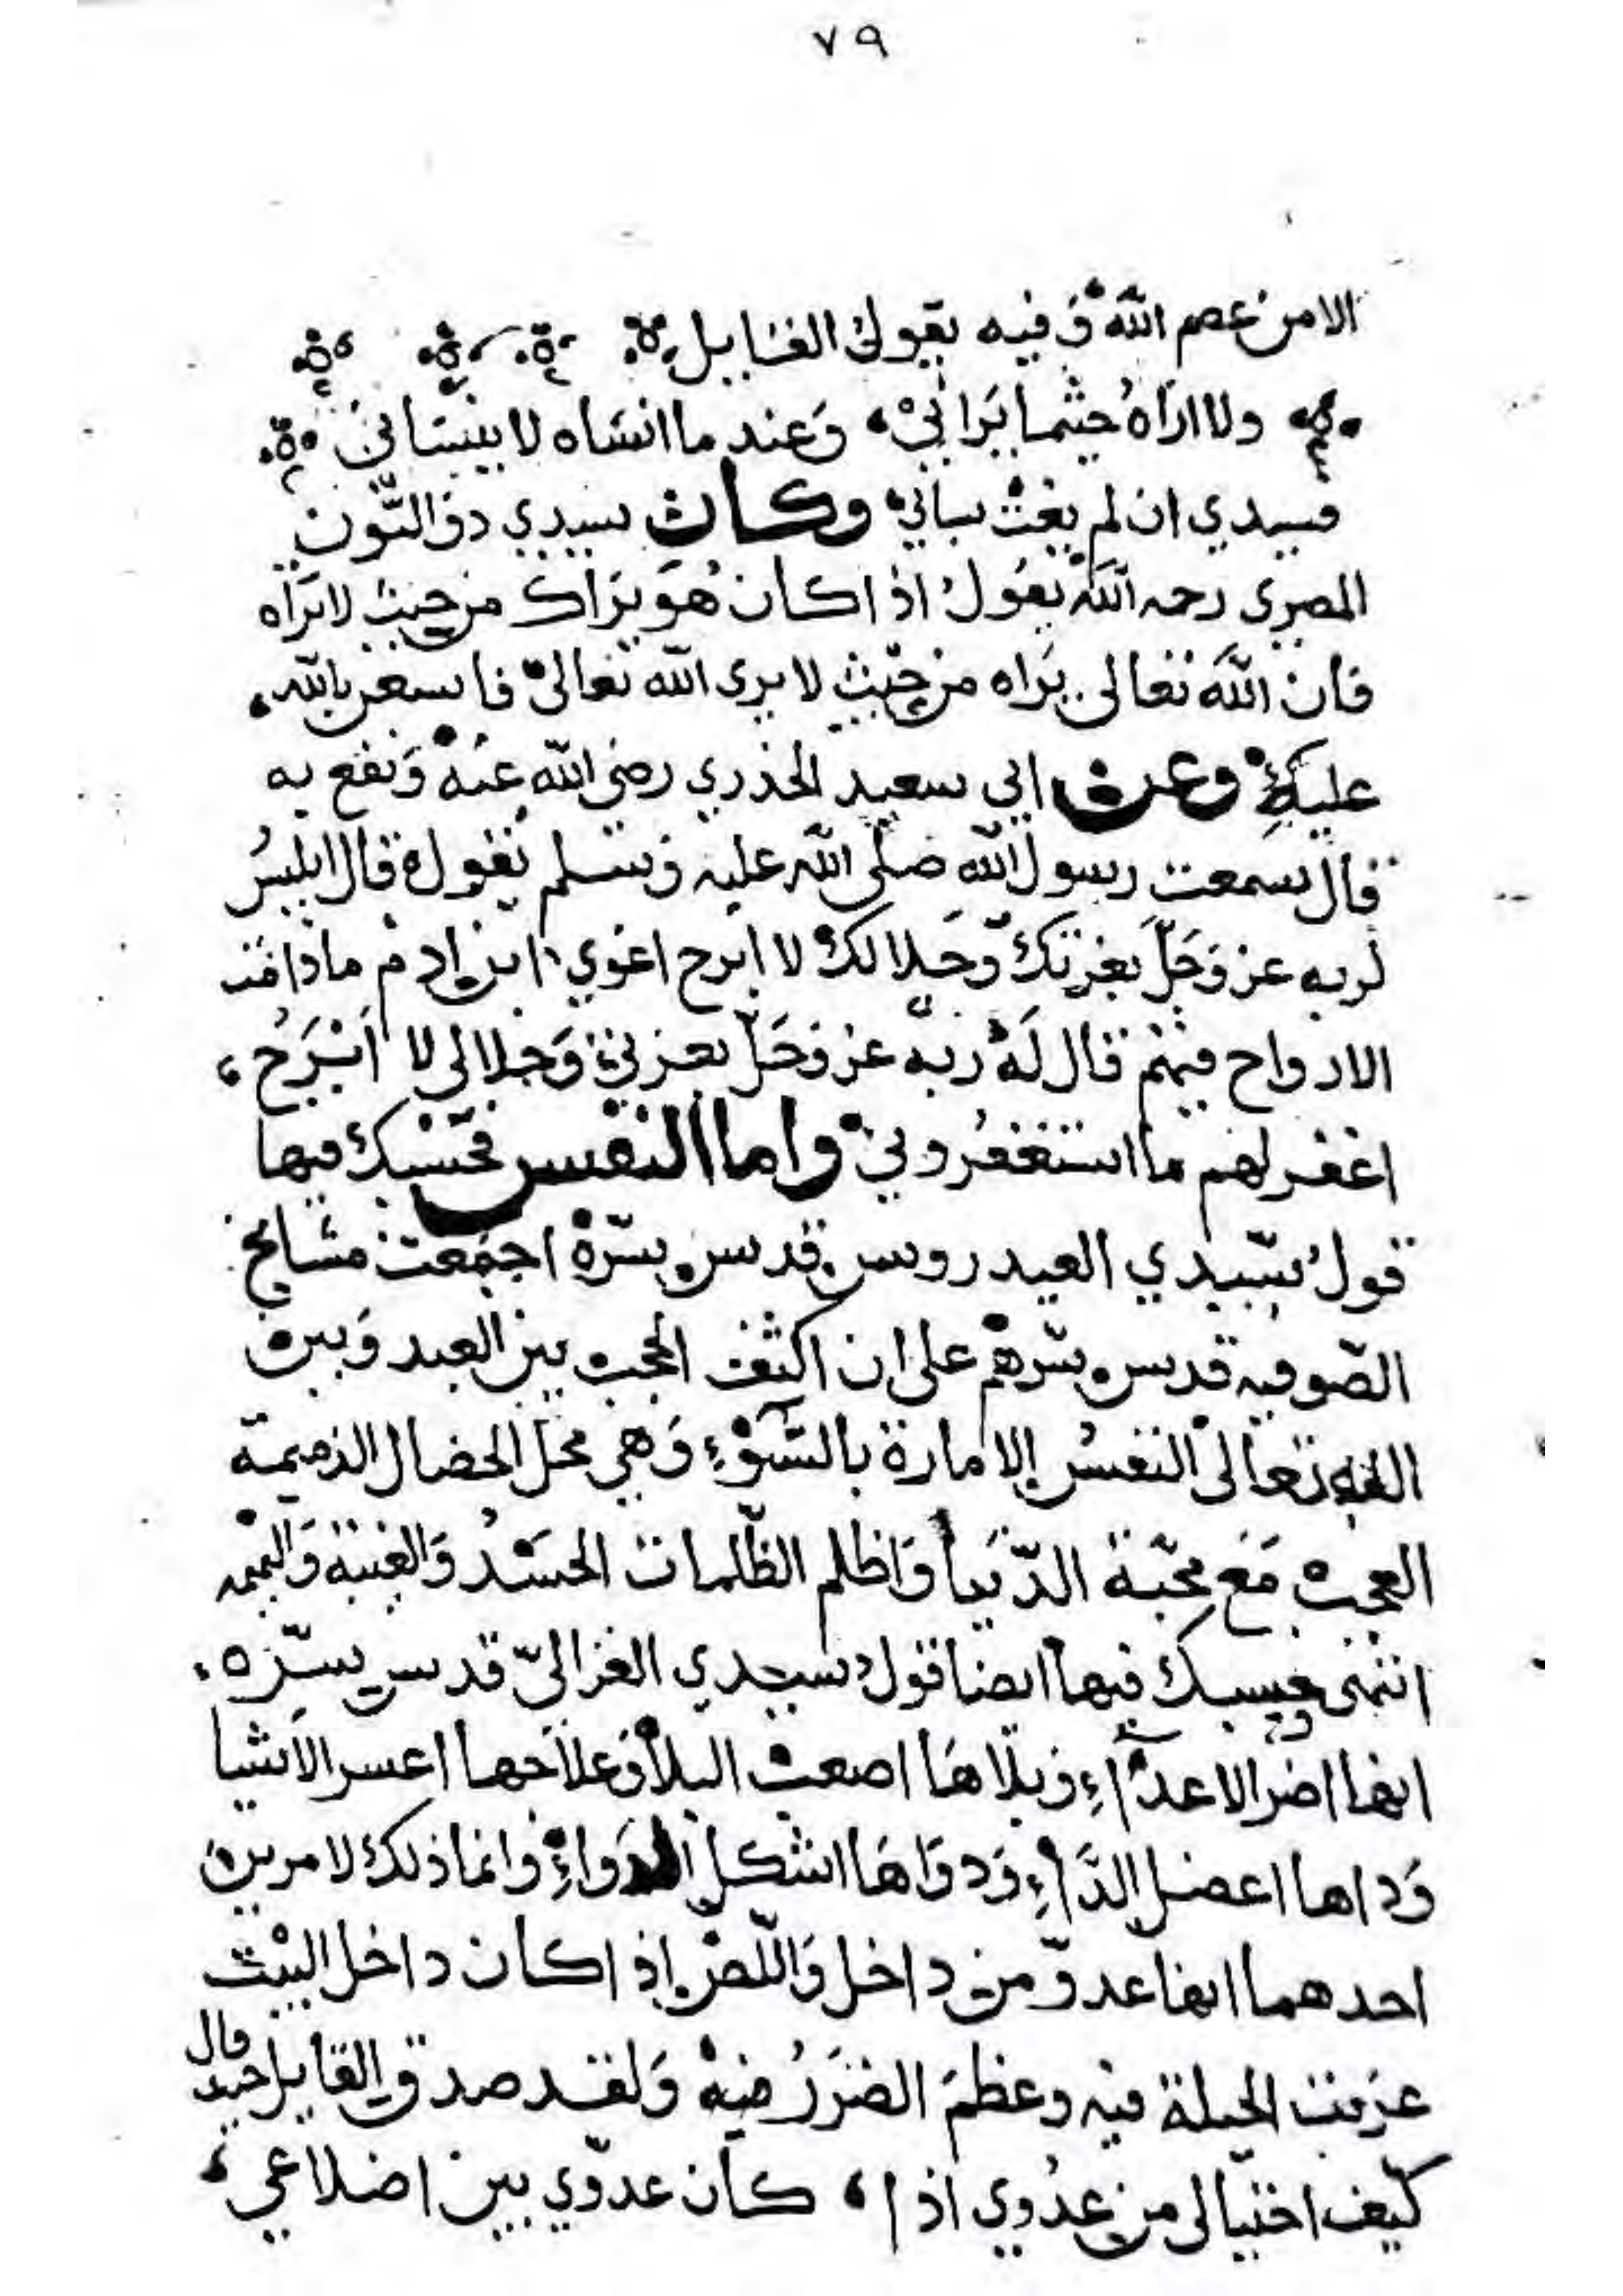 ٧٩
الا من عصم الله وفيه يقول القايل
ولا اراه حيثما يراني وعند ما انساه لا ينساني
فسيدي ان لم يغث سباني وكان سيدي ذو النون
المصري رحمه الله يقول اذا كان هو يراك من حيث لا تراه
فان الله تعالى يراه من حيث لا يرى الله تعالى فاستعن بالله
عليه وعن ابي سعيد الخدري رضي الله عنه ونفع به
قال سمعت رسول الله صلى الله عليه وسلم يقول قال ابليس
لربه عز وجل بعزتك وجلالك لا ابرح اغوي ابن ادم ما دامت
الارواح فيهم قال له ربه عز وجل بعزتي وجلالي لا ابرح
اغفر لهم ما استغفروني واما النفس فحسبك فيها
قول سيدي العيدروس قدس سره اجمعت مشايخ
الصوفيه قدس سرهم على ان اكثف الحجب بين العبد وبين
الله تعالى النفس الامارة بالسوء وهي محل الخصال الذميمة
العجب مع محبة الدنيا واظلم الظلمات الحسد والغيبة والنميمه
انتهى وحسبك فيها ايضا قول سيدي الغزالي قدس سره
انها اضر الاعداء وبلاها اصعب البلا وعلاجها اعسر الاشيا
وداها اعضل الداء ودواها اشكل الدواء وانما ذلك لامرين
احدهما انها عدو من داخل واللص اذا كان داخل البيت
عزفت الحيلة فيه وعظم الضرر منه ولقد صدق القايل حيث قال
كيف احتيالي من عدوي اذا كان عدوي بين اضلاعي